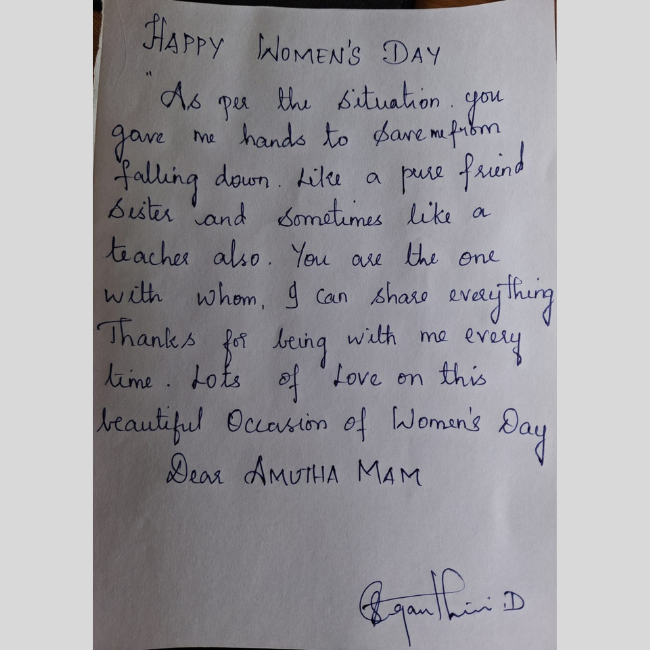 HAPPY WOMEN'S DAY
"As per the situation. you
gave me hands to save me from
falling down. Like a pure friend
sister and sometimes like a
teacher also. You are the one
with whom, I can share everything
Thanks for being with me every
time. Lots of Love on this
beautiful Occasion of Women's Day
Dear AMUTHA MAM